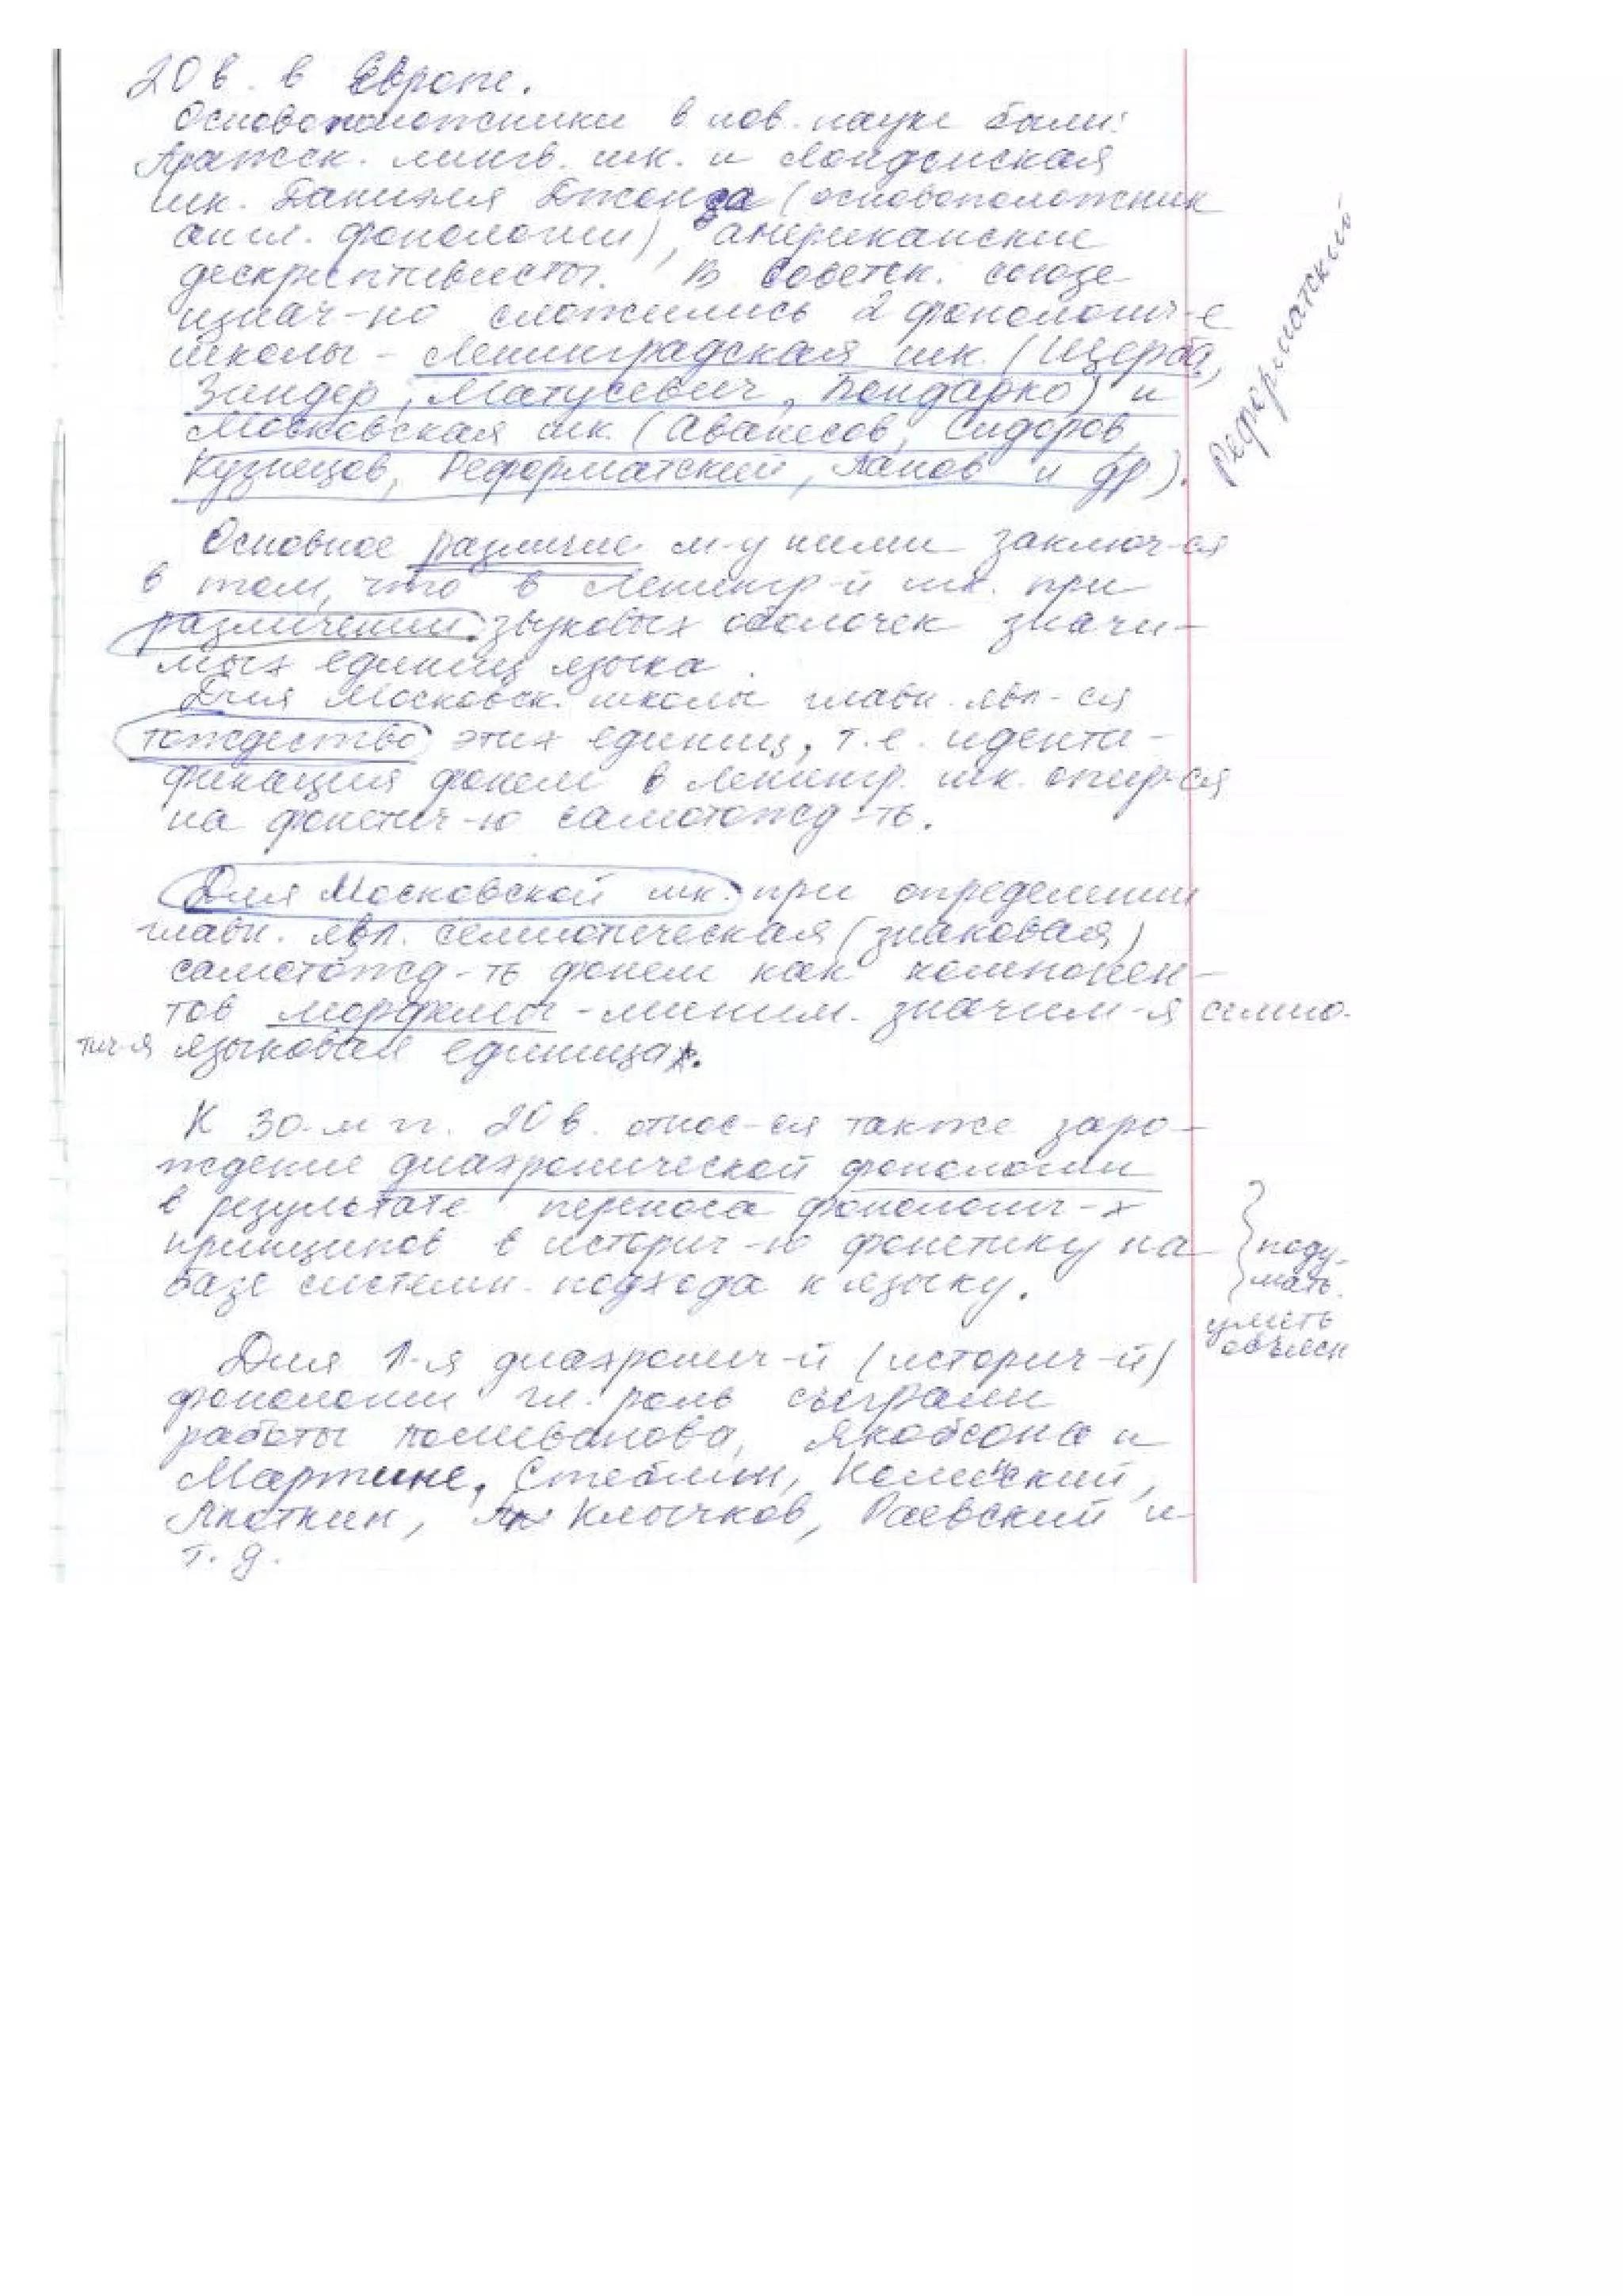 20 в. в Европе.
Основоположники в нов. науке были:
Пражск. лингв. шк. и Лондонская
шк. Даниэля Джонза (основоположник
англ. фонологии), американские
дескриптивисты. В Советск. союзе
изнач-но сложились 2 фонологич-е
школы - Ленинградская шк. (Щерба,
Зиндер, Матусевич, Бондарко) и
Московская шк. (Аванесов, Сидоров,
Кузнецов, Реформатский, Панов и др.).
Реформатский
Основное различие м-у ними заключ-ся
в том, что в Ленингр-й шк. при
различении звуковых оболочек значи-
мых единиц языка.
Для Московск. школы главн. явл-ся
тождество этих единиц, т.е. иденти-
фикация фонем в Ленингр. шк. опир-ся
на фонетич-ю самотожд-ть.
Для Московской шк. при определении
главн. явл. семиотическая (знаковая)
самотожд-ть фонем как компонен-
тов морфемы - миним. значим-я семио-
тич-я языковая единица.
К 30-м гг. 20 в. относ-ся также заро-
ждение диахронической фонологии
в результате переноса фонологич-х
принципов в историч-ю фонетику на
базе системн. подхода к языку.
поду-
мать.
уметь
объясн
Для 1-я диахронич-й (историч-й)
фонологии гл. роль сыграли
работы Поливанова, Якобсона и
Мартине, Стеблин, Каменский,
Клычков, Раевский и
т. д.